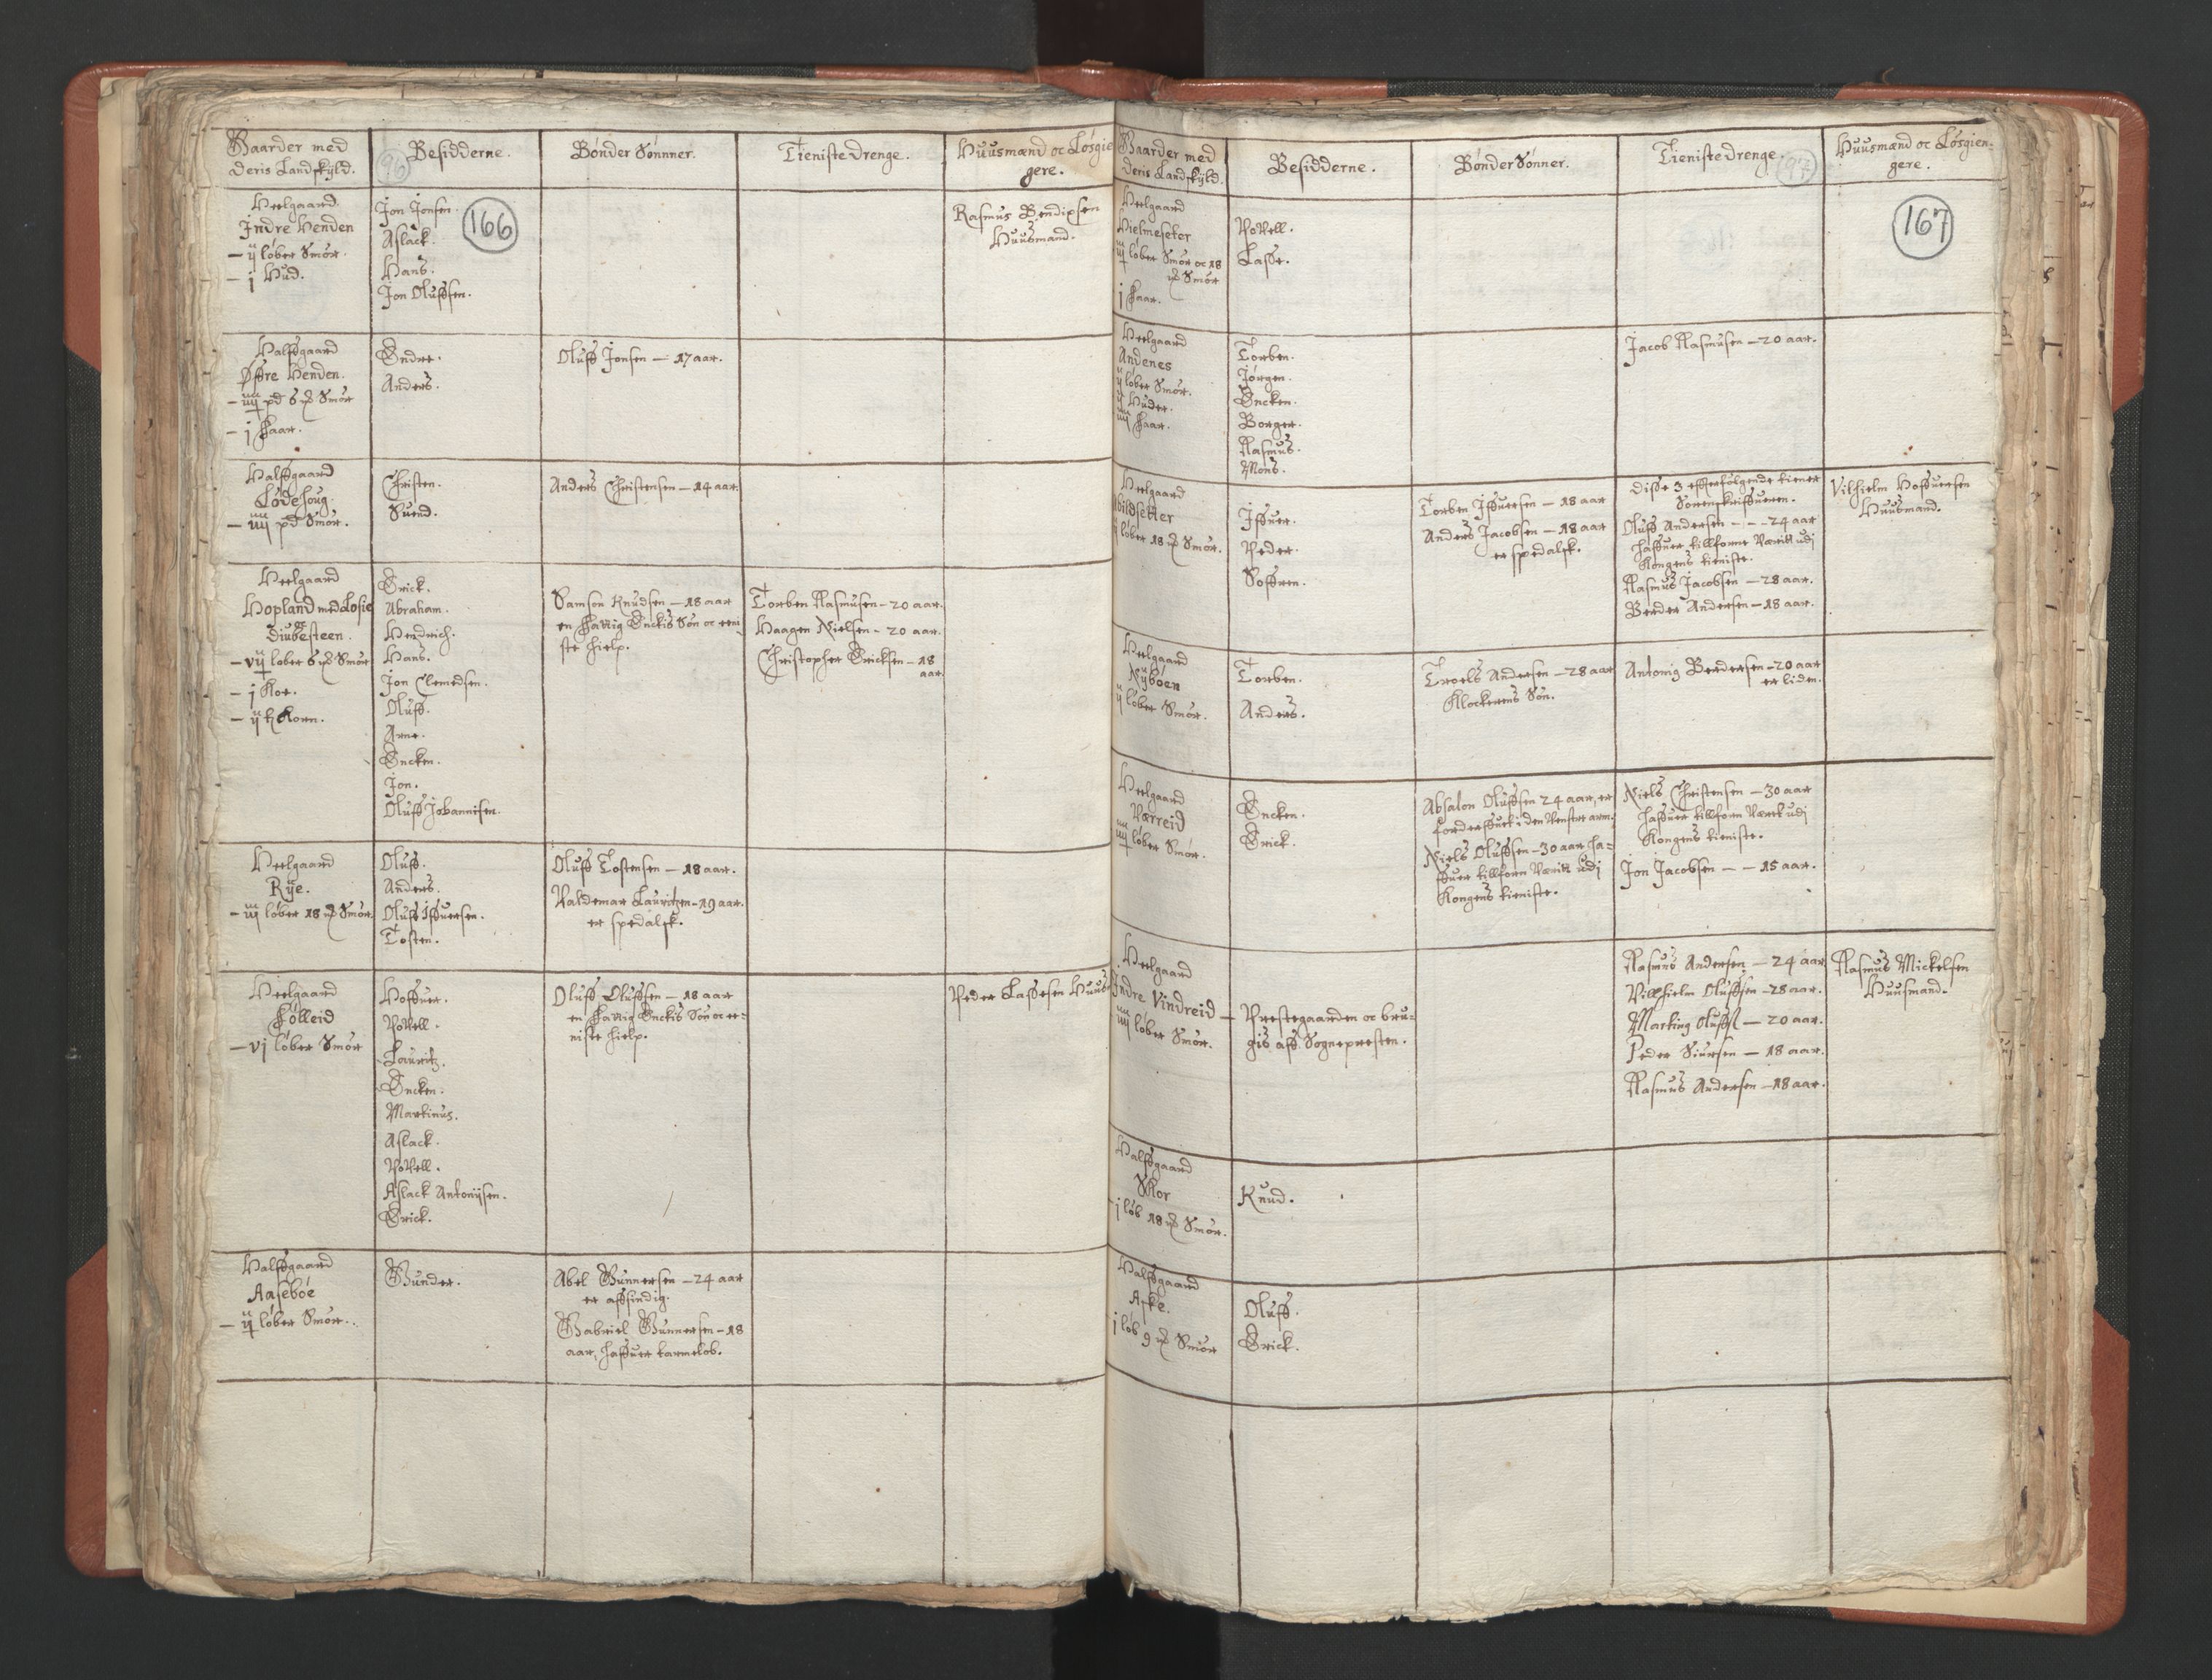 Gaarder med
deris Landskyld.
Besidderne.
Bønder Sønnner.
Tieniste drenge.
Huusmænd oc Løsgie
gere.
96
166
Heelgaard
Indre Henden
– ij løber Smør.
– j Hud.
Jon Jonsen.
Aslack.
Hans.
Jon Oluffsen.
Rasmus Bendixsen
Huusmand.
Halffgaard
Øffre Henden.
– iiij pd 6 Smør
– j Faar.
Endre.
Anders.
Oluff Jonsen – 17 aar.
Halffgaard
Lødehoug.
– iiij pd Smør.
Christen.
Suend.
Anders Christensen – 14 aar.
Heelgaard
Hopland med Losie
oc
Diubesteen.
– vij løber 6 Smør
– j Koe.
– ij Korn.
Erick.
Abraham.
Hendrich.
Hans.
Jon Clemedsen.
Oluff.
Arne.
Encken.
Jon.
Oluff Johannisen.
Samson Knudsen – 18 aar
en fattig Enckis Søn oc eeni
ste hielp.
Torben Rasmusen – 20 aar.
Haagen Nielsen – 20 aar.
Christopher Ericksen – 18
aar.
Heelgaard
Rye.
– iij løber 18 Smør.
Oluff.
Anders.
Oluff Iffuersen.
Tosten.
Oluff Tostensen – 18 aar.
Valdemar Lauritzen – 19 aar.
er spedalsk.
Heelgaard
Følleid
– vj løber Smør
Hoffuer.
Povell.
Lauritz.
Encken.
Martinus.
Aslack.
Povell.
Aslack Antonijsen.
Erick.
Oluff Oluffsen – 18 aar
en fattig Enckis Søn oc ee-
niste hielp.
Peder Lassesen Huus
Halffgaard
Aasebøe
– ij løber Smør.
Gunder.
Abel Gunnersen – 24 aar
er affsindig.
Gabriel Gunnersen – 18
aar, haffuer tarmeløb.
Gaarder med
deris Landskyld.
Besidderne.
Bønder Sønner.
Tieniste drenge.
Huusmænd oc Løsgien-
gere.
97
167
Heelgaard
Hielmesetor
iij løber Smør oc 18
Smør
j Faar.
Povell.
Lasse.
Heelgaard
Andenes
ij løber Smør.
ij Huder.
iiij Faar.
Torben.
Jørgen.
Encken.
Borger.
Rasmus.
Mons.
Jacob Rasmusen – 20 aar.
Heelgaard
løber 18 Smør.
Iffuer.
Peder.
Soffren.
Torben Iffuersen – 18 aar
Anders Jacobsen – 18 aar
er spedalsk.
Disse 3 effterfølgende tiener
Sorenskriffueren.
Oluff Andersen – – – 24 aar
haffuer tillforne Værit udj
Kongens tieniste.
Rasmus Jacobsen – 28 aar.
Berder Andersen – 18 aar.
Vilhielm Hoffuersen
Huusmand.
Heelgaard
Nybøen
ij løber Smør.
Torben.
Anders.
Troels Andersen – 28 aar
Klockerens Søn.
Antonig Berdersen – 20 aar
er liden.
Heelgaard
Værreid
iiij løber Smør.
Encken.
Erick.
Absalon Oluffsen 24 aar, er
forderffuet i den Venstre arm.
Niels Oluffsen – 30 aar ha-
ffuer tillforn Værit udj
Kongens tieniste.
Niels Christensen – 30 aar
haffuer tillforn Værit udj
Kongens tieniste.
Jon Jacobsen – – 15 aar.
Heelgaard
Indre Vindreid –
iiij løber Smør.
Prestegaarden oc bru-
gis aff Sognepresten.
Rasmus Andersen – 24 aar
Villhielm Oluffsen – 28 aar.
Marting Oluffs – 20 aar.
Peder Siursen – 18 aar.
Rasmus Andersen – 18 aar.
Rasmus Mickelsen
Huusmand.
Halffgaard
Skor
j løb 18 Smør.
Knud.
Halffgaard
Aske.
j løb 9 Smør
Oluff.
Erick.